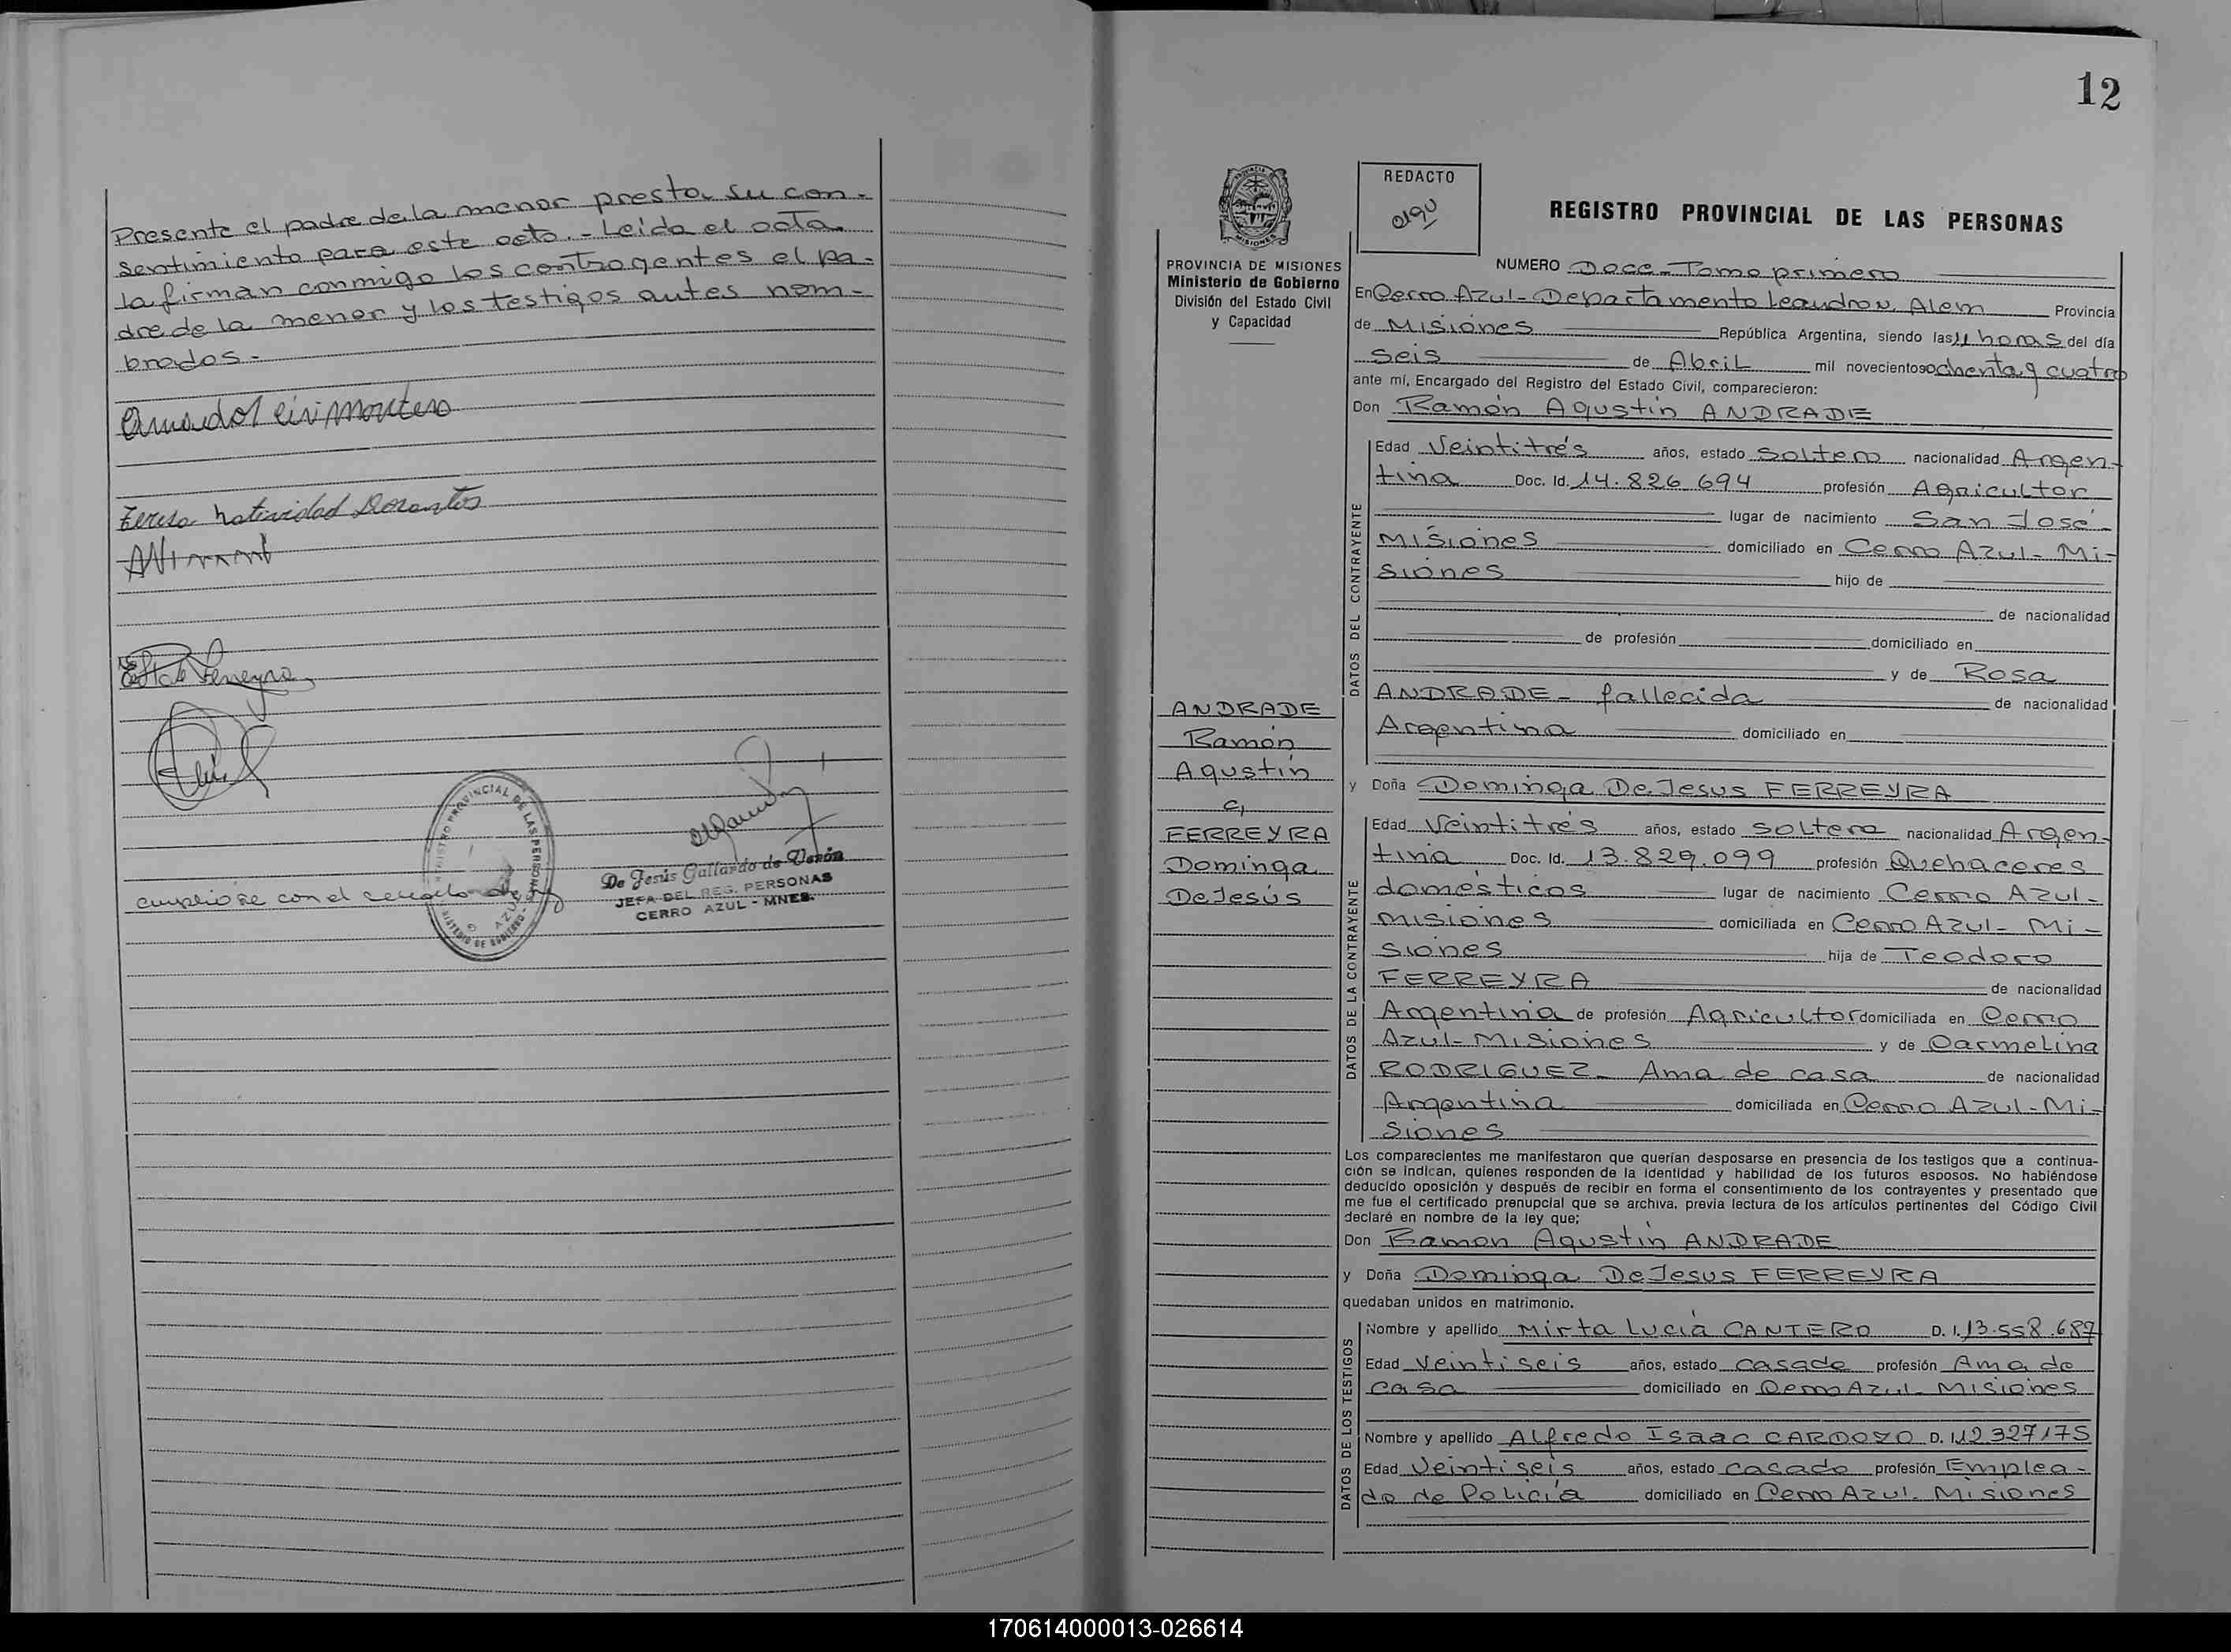 Presente el padre de la menor presta su con-
sentimiento para este acto.- Leída el acta
la firman conmigo los contragentes el pa-
dre de la menor y los testigos antes nom-
brados-
Teresa Natividad Dorantes
cumplióse con el
REGISTRO PROVINCIAL DE LAS PERSONAS
De Jesús Gallardo de Verón
JEFA DEL REG. PERSONAS
CERRO AZUL - MNES.
12
PROVINCIA DE MISIONES
Ministerio de Gobierno
División del Estado Civil
y Capacidad
REDACTO
REGISTRO PROVINCIAL DE LAS PERSONAS
NUMERO Doce-Tomo primero
En Cerro Azul-Departamento Leandro N. Alem Provincia
de Misiones República Argentina, siendo las 11 horas del día
Seis de Abril mil novecientos ochenta y cuatro
ante mí, Encargado del Registro del Estado Civil, comparecieron:
Don Ramón Agustín ANDRADE
DATOS DEL CONTRAYENTE
Edad Veintitrés años, estado Soltero nacionalidad Argen-
tina Doc. Id. 14.826.694 profesión Agricultor
lugar de nacimiento San José
Misiones domiciliado en Cerro Azul- Mi-
siones hijo de
de nacionalidad
de profesión domiciliado en
y de Rosa
ANDRADE- fallecida de nacionalidad
Argentina domiciliado en
ANDRADE
Ramón
Agustín
c/
FERREYRA
Dominga
De Jesús
y Doña Dominga De Jesus FERREYRA
DATOS DE LA CONTRAYENTE
Edad Veintitrés años, estado Soltera nacionalidad Argen-
tina Doc. Id. 13.829.099 profesión Quehaceres
domésticos lugar de nacimiento Cerro Azul-
Misiones domiciliada en Cerro Azul- Mi-
siones hija de Teodoro
FERREYRA de nacionalidad
Argentina de profesión Agricultor domiciliada en Cerro
Azul-Misiones y de Carmelina
RODRIGUEZ- Ama de casa de nacionalidad
Argentina domiciliada en Cerro Azul-Mi-
siones
Los comparecientes me manifestaron que querían desposarse en presencia de los testigos que a continua-
ción se indican, quienes responden de la identidad y habilidad de los futuros esposos. No habiéndose
deducido oposición y después de recibir en forma el consentimiento de los contrayentes y presentado que
me fue el certificado prenupcial que se archiva, previa lectura de los artículos pertinentes del Código Civil
declaré en nombre de la ley que;
Don Ramon Agustín ANDRADE
y Doña Dominga De Jesus FERREYRA
quedaban unidos en matrimonio.
DATOS DE LOS TESTIGOS
Nombre y apellido Mirta Lucía CANTERO D. I. 13.558.687
Edad Veintiseis años, estado casada profesión Ama de
casa domiciliado en Cerro Azul- Misiones
Nombre y apellido Alfredo Isaac CARDOZO D. I. 12.327.175
Edad Veintiseis años, estado casado profesión Emplea-
do de Policía domiciliado en Cerro Azul- Misiones
170614000013-026614